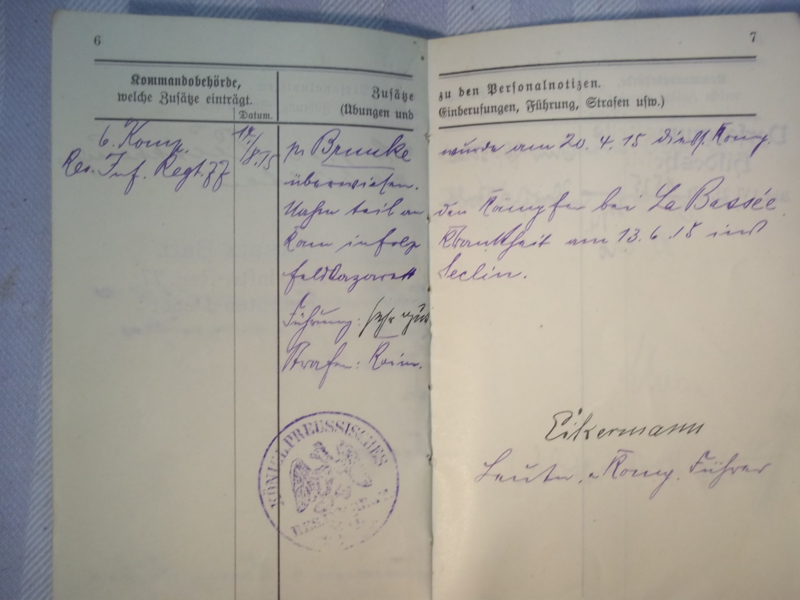 6
7
Kommandobehörde,
welche Zusätze einträgt.
Datum.
Zusätze
(Übungen und
zu den Personalnotizen.
Einberufungen, Führung, Strafen usw.)
6. Komp.
Res. Inf. Regt. 77
8/15
Brunke wurde am 20.4.15 dies. Komp.
überwiesen.
Nahm teil an den Kämpfen bei La Bassée
Kam infolge Krankheit am 13.6.15 ins
Feldlazarett Seclin.
Führung: sehr gut
Strafen: Keine.
KÖNIGL. PREUSSISCHES
Eikermann
Leutn. u. Komp. Führer